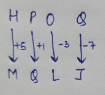 H P O Q
+5 +1 -3 -7
M Q L J